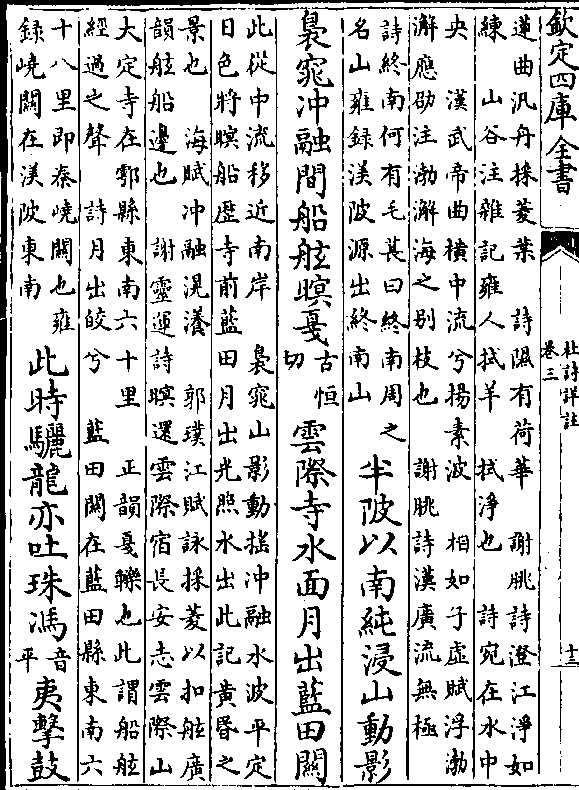 欽定四庫全書
杜詩詳註
卷三
十三
蓮曲汎丹採菱葉 詩隰有荷華 謝朓詩澄江淨如
練 山谷注雜記雍人拭羊 拭淨也 詩宛在水中
央 漢武帝曲橫中流兮揚素波 相如子虛賦浮渤
澥應劭注渤澥海之别枝也 謝朓詩漢廣流無極
詩終南何有毛萇曰終南周之
名山雍録渼陂源出終南山
半陂以南純浸山動影
裊窕冲融間船舷暝戞
古恒
切
雲際寺水面月出藍田關
此從中流移近南岸 裊窕山影動揺冲融水波平定
日色將暝船歴寺前藍田月出光照水出此記黄昏之
景也 海賦冲融滉瀁 郭璞江賦詠採菱以扣舷廣
韻舷船邊也 謝靈運詩暝還雲際宿長安志雲際山
大定寺在鄠縣東南六十里 正韻戞轢也此謂船舷
經過之聲 詩月出皎兮 藍田關在藍田縣東南六
十八里即秦嶢關也雍
録嶢關在渼陂東南
此時驪龍亦吐珠馮
音
平
夷擊鼓